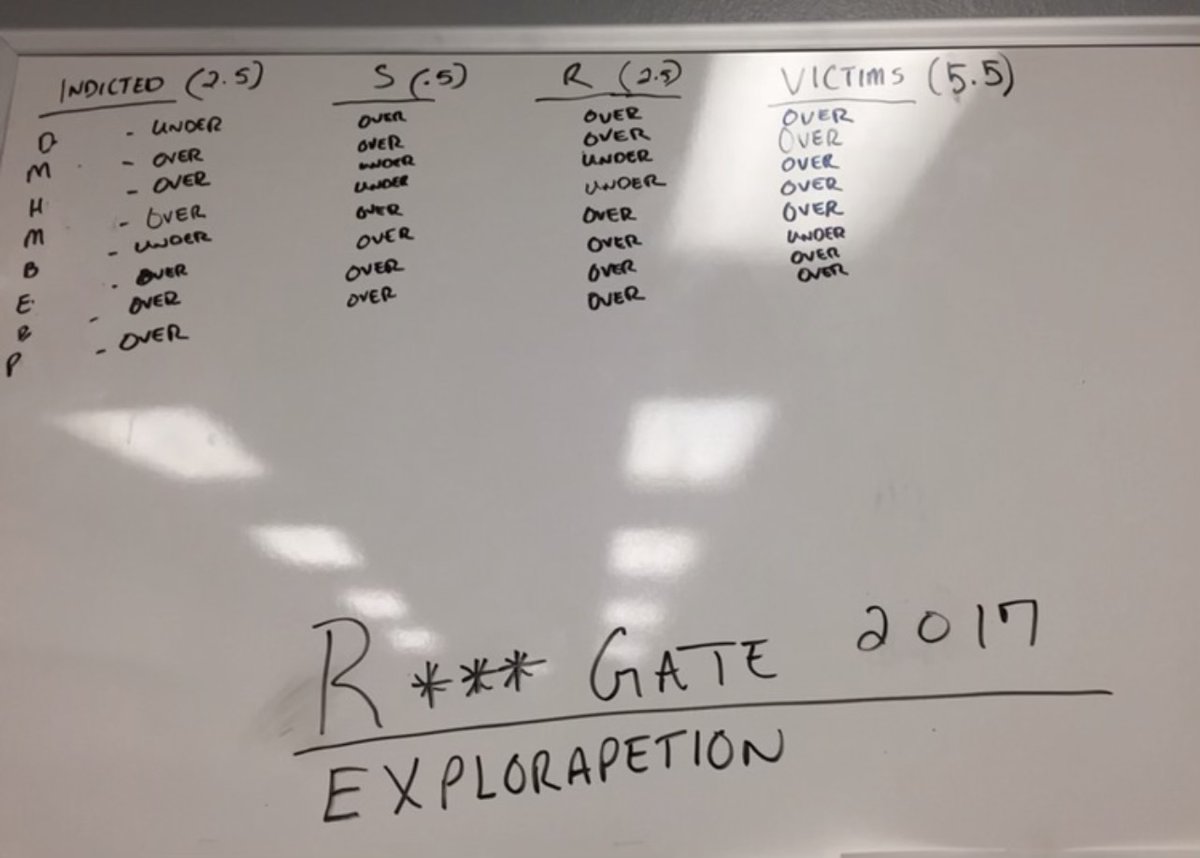 INDICTED (2.5) S (.5) R (2.5) VICTIMS (5.5)
D - UNDER OVER OVER OVER
M - OVER OVER OVER OVER
H - OVER UNDER UNDER OVER
M - OVER UNDER UNDER OVER
B - UNDER OVER OVER OVER
E - OVER OVER OVER UNDER
B - OVER OVER OVER OVER
P - OVER OVER OVER OVER
R*** GATE 2017
EXPLORAPETION